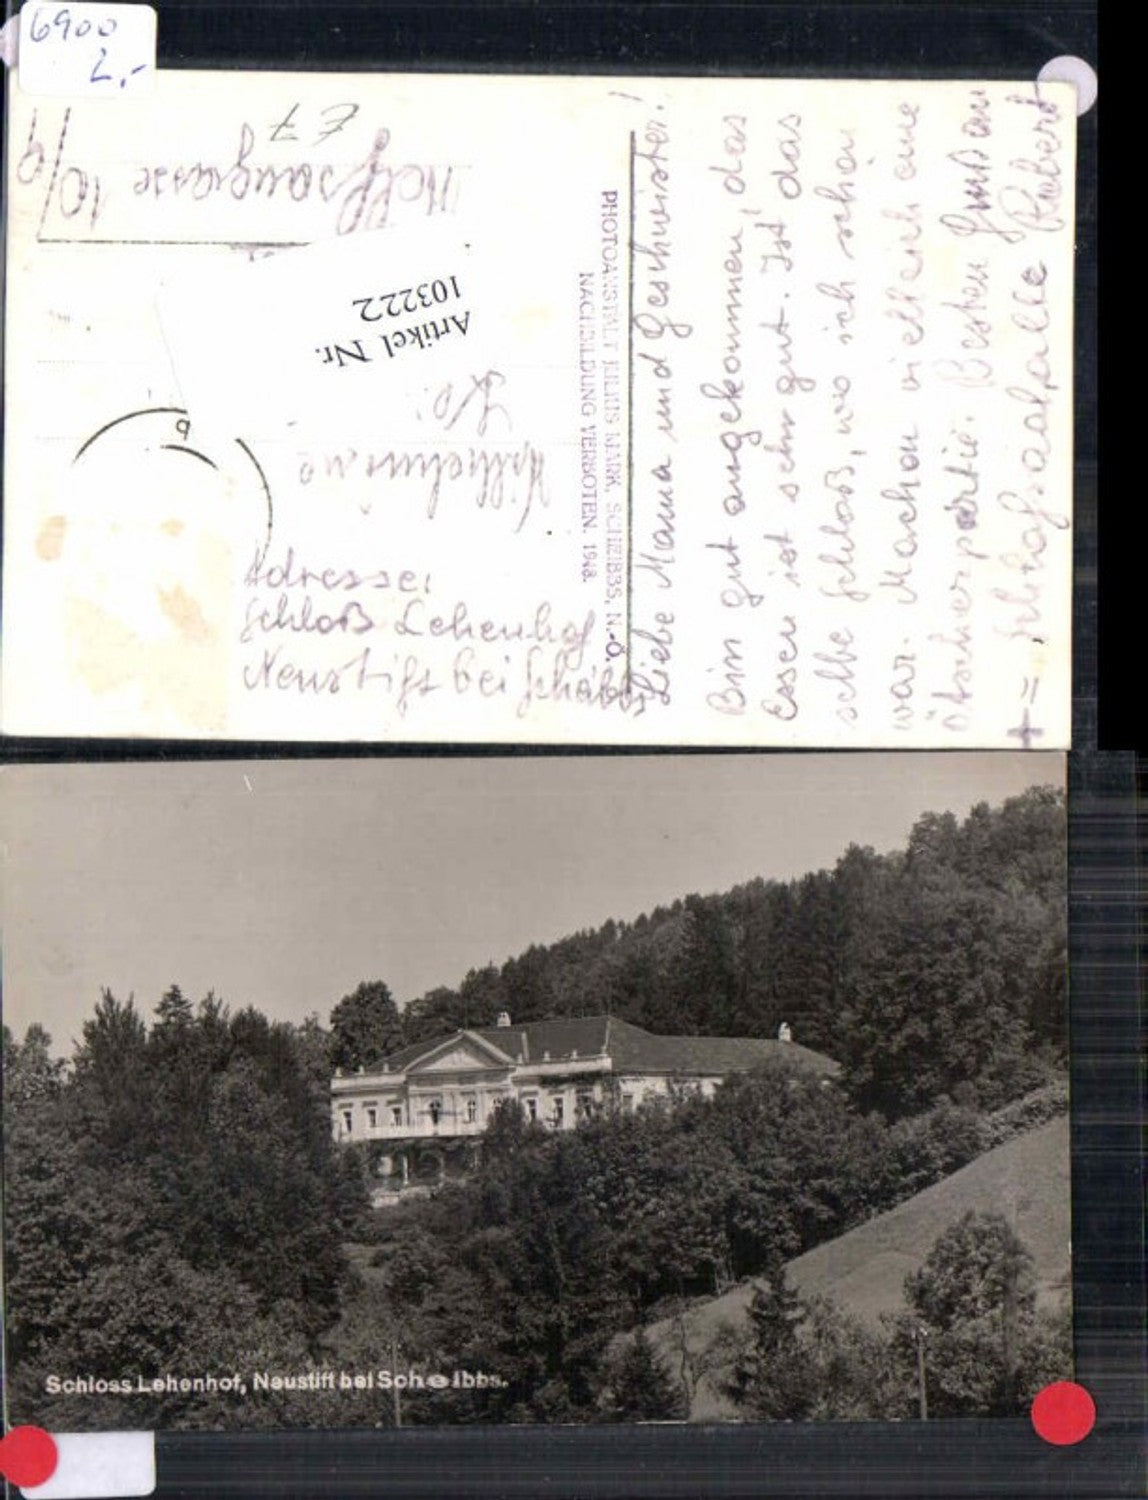 6900
2,-
E7
Artikel Nr.
103222
Wilhelmine
10/9
PHOTOANSTALT JULIUS MARK, SCHEIBBS, N.-Ö.
NACHBILDUNG VERBOTEN. 1948.
Adresse:
Schloß Lehenhof
Neustift bei Scheibbs
Liebe Mama und Geschwister!
Bin gut angekommen, das
Essen ist sehr gut. Ist das
selbe Schloß, wo ich schon
war. Machen vielleich eine
Ötscherpartie. Besten Gruß an
alle Robert
Schloss Lehenhof, Neustift bei Scheibbs.